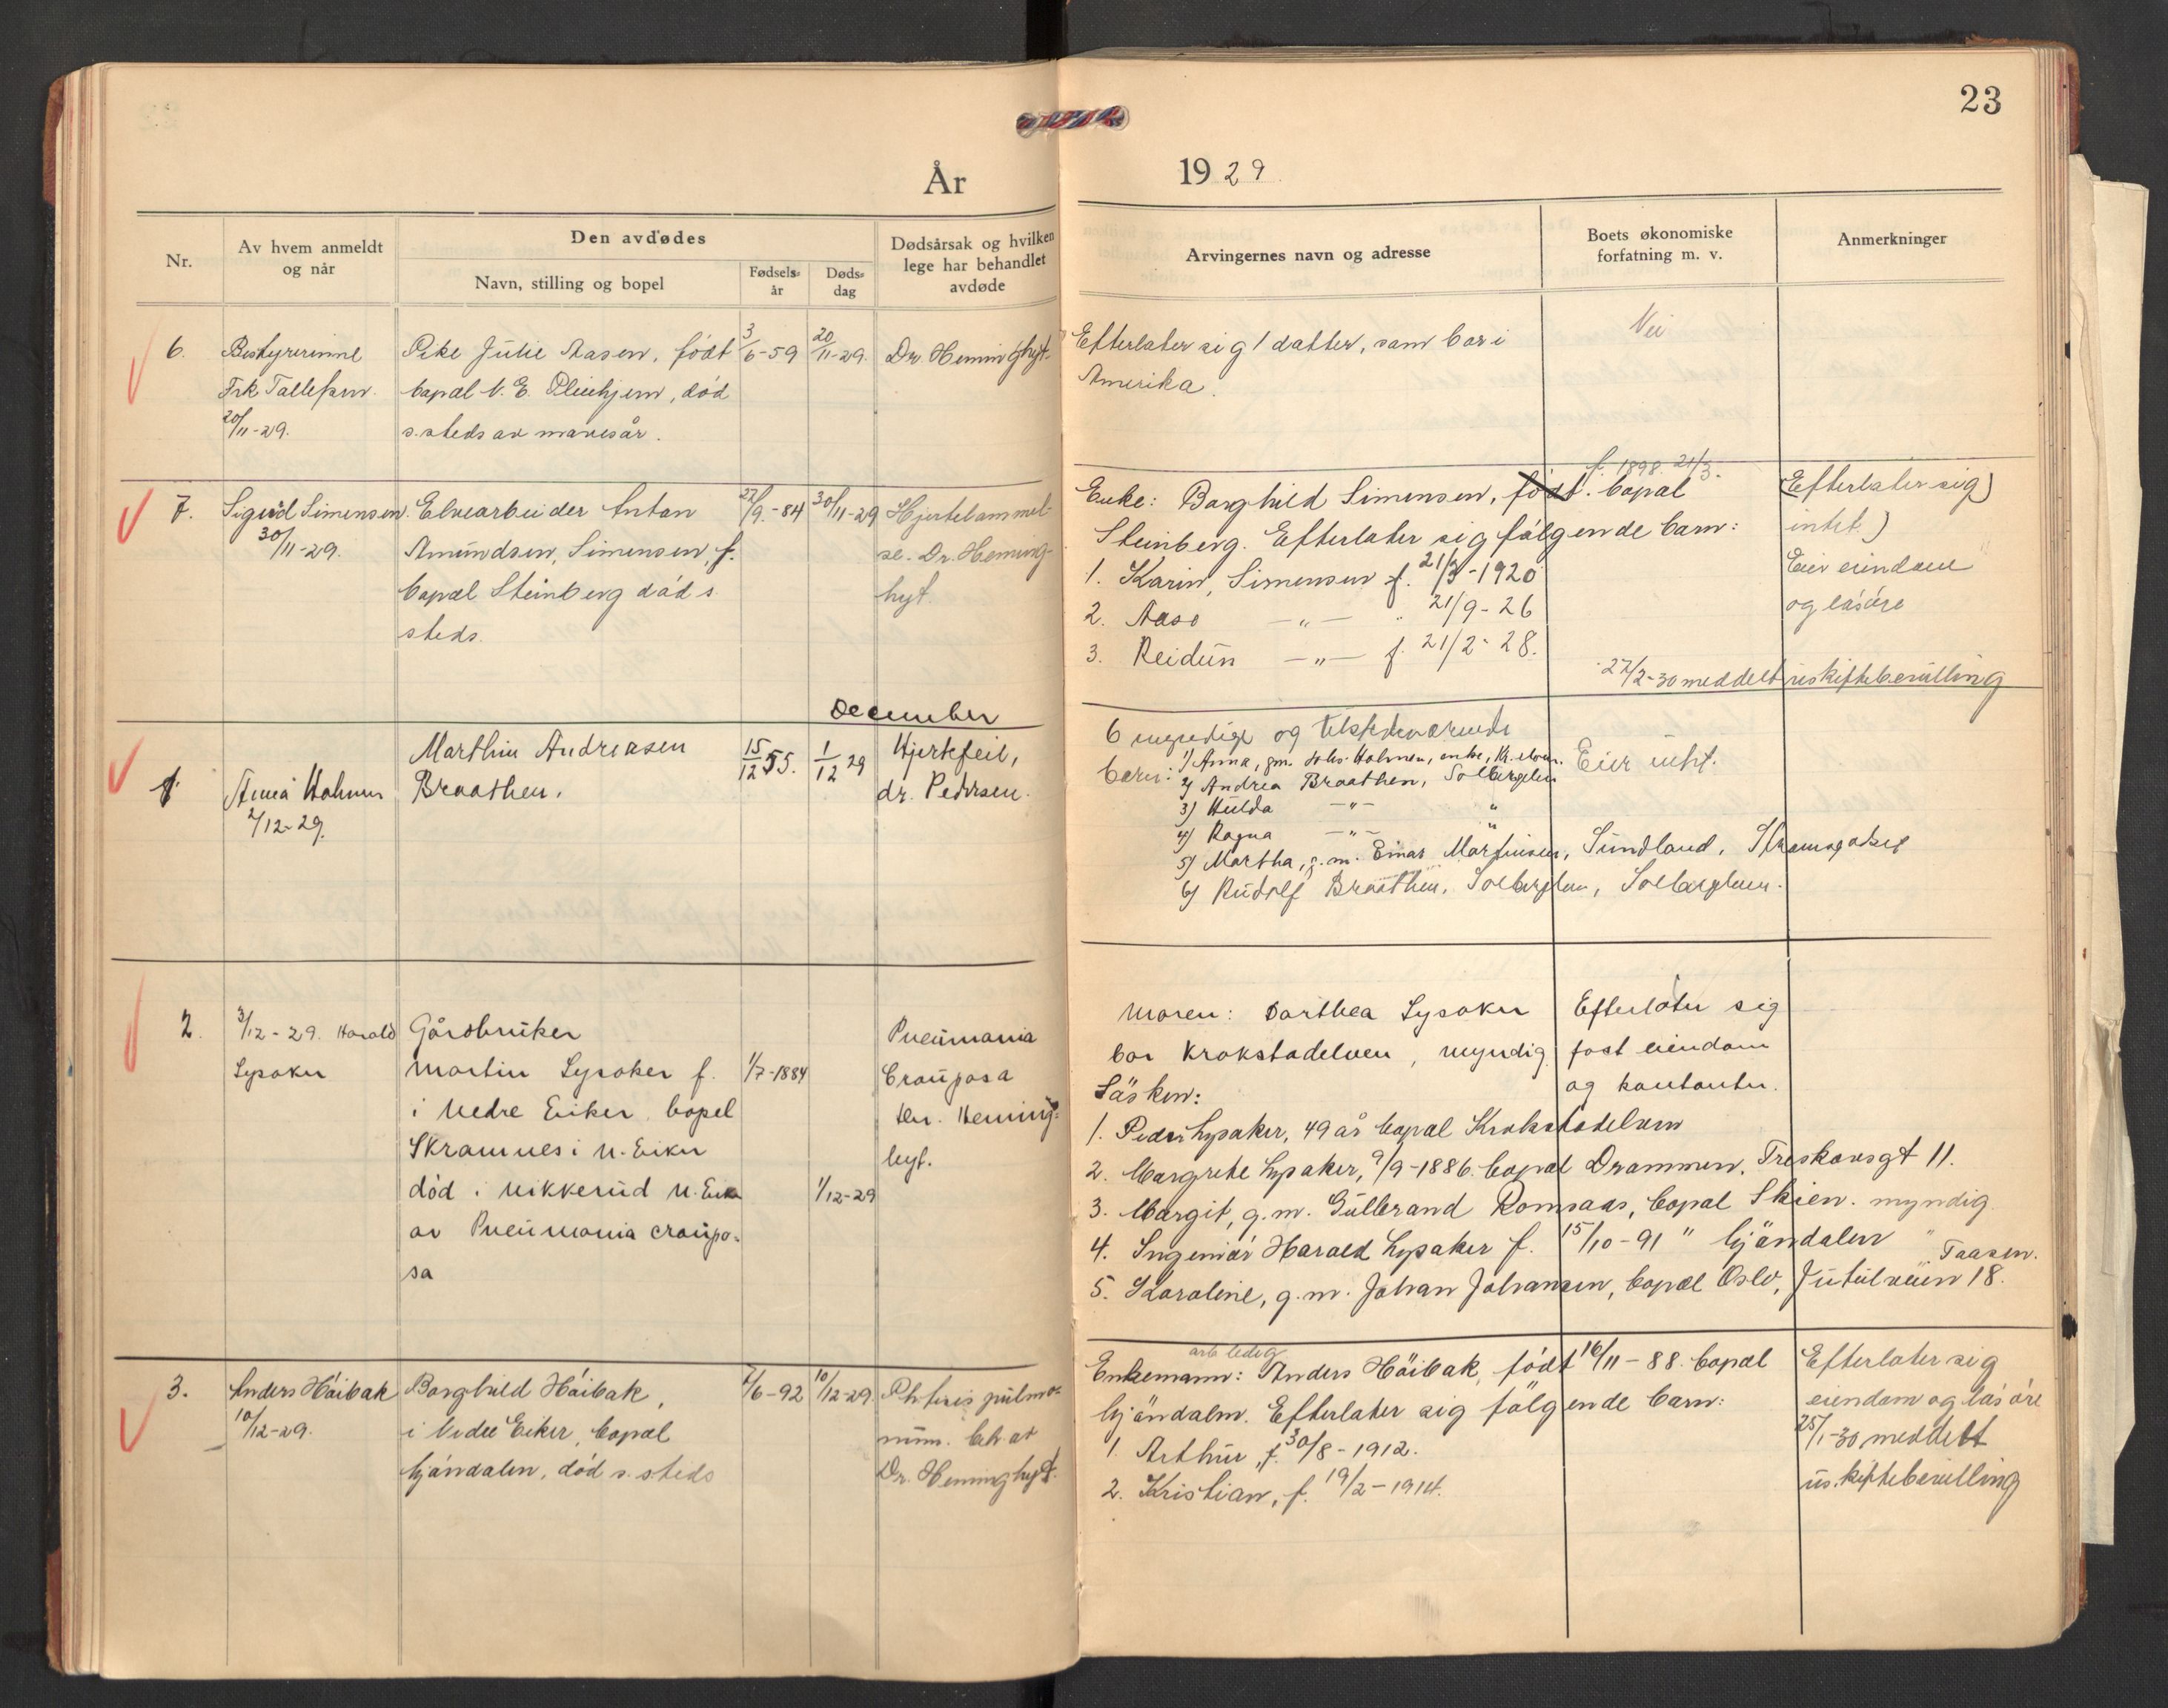 23
År 1929.
Nr.
Av hvem anmeldt
og når
Den avdødes
Navn, stilling og bopel
Fødsels-
år
Døds-
dag
Dødsårsak og hvilken
lege har behandlet
avdøde
Arvingernes navn og adresse
Boets økonomiske
forfatning m. v.
Anmerkninger
6.
Bestyrerinne
Frk Tallefsen
20/11-29.
Pike Julie Aasen, født
bopæl N. E. Pleiehjem, död
s.steds av mavesår.
3/6-59
20/11-29.
Dr. Heminghyt.
Efterlater sig 1 datter, som bor i
Amerika.
Nei
7.
Sigurd Simensen.
30/11-29.
Elvearbeider Anton
Amundsen, Simensen, f.
bopæl Steinberg död s.
steds.
27/9-84
30/11-29
Hjertelammel-
se. Dr. Heming-
hyt.
f. 1898. 21/3.
Enke: Borghild Simensen, født. bopæl
Steinberg. Efterlater sig følgende barn:
1. Karin, Simensen f. 21/3-1920
2. Aase -"- " 21/9-26
3. Reidun -"- f. 21/2-28.
(Efterlater sig)
intet)
Eier eiendom
og lösöre
27/2-30 meddelt uskiftebevilling
December
1
Anna Holmen
2/12-29.
Marthin Andreasen
Braathen.
15/12 55.
1/12 29
Hjertefeil,
dr. Pedersen.
6 myndige og tilstedeværende
barn: 1) Anna, gm. Johs. Holmen, enke, Kr.elven.
2) Andrea Braathen, Solbergelven
3) Hulda -"- "
4) Ragna -"- "
5) Martha, g.m. Einar Martinsen, Sundland, Strømsgodset
6) Rudolf Braathen, Solbergelven, Solbergelven.
Eier intet.
2.
3/12-29. Harald
Lysaker
Gårdbruker
Martin Lysaker f.
i Nedre Eiker, bopel
Skramnes i N. Eiker
död i Mikkerud N. Eiker
av Pneumonia croupo-
sa
1/7-1884
1/12-29
Pneumonia
Crouposa
Dr. Heming-
hyt.
Moren: Dorthea Lysaker
bor Krokstadelven, myndig
Säsken:
1. Peder Lysaker, 49 år bopæl Krokstadelven
2. Margrete Lysaker, 9/9-1886. bopæl Drammen, Treskowsgt 11.
3. Margit, g.m. Gulbrand Romsaas, bopæl Skien. myndig
4. Ingeniör Harald Lysaker f. 15/10-91 " Mjöndalen "
5. Karoline, g.m. Johan Johansen, bopæl Oslo, Jutulveien 18. Taasen.
Efterlater sig
fast eiendom
og kontanter.
3.
Anders Höibak
10/12-29.
Borghild Höibak,
i Nedre Eiker, bopæl
Mjöndalen, död s. steds
7/6-92
10/12-29.
Phtisis pulmo-
num. Beh. av
Dr. Heminghyt.
arb. ledig
Enkemann: Anders Höibak, födt 16/11-88. bopæl
Mjöndalen. Efterlater sig fölgende barn:
1. Arthur, f. 30/8-1912.
2. Kristian, f. 19/2-1914.
Efterlater sig
eiendom og lösöre
25/1-30 meddelt
uskiftebevilling